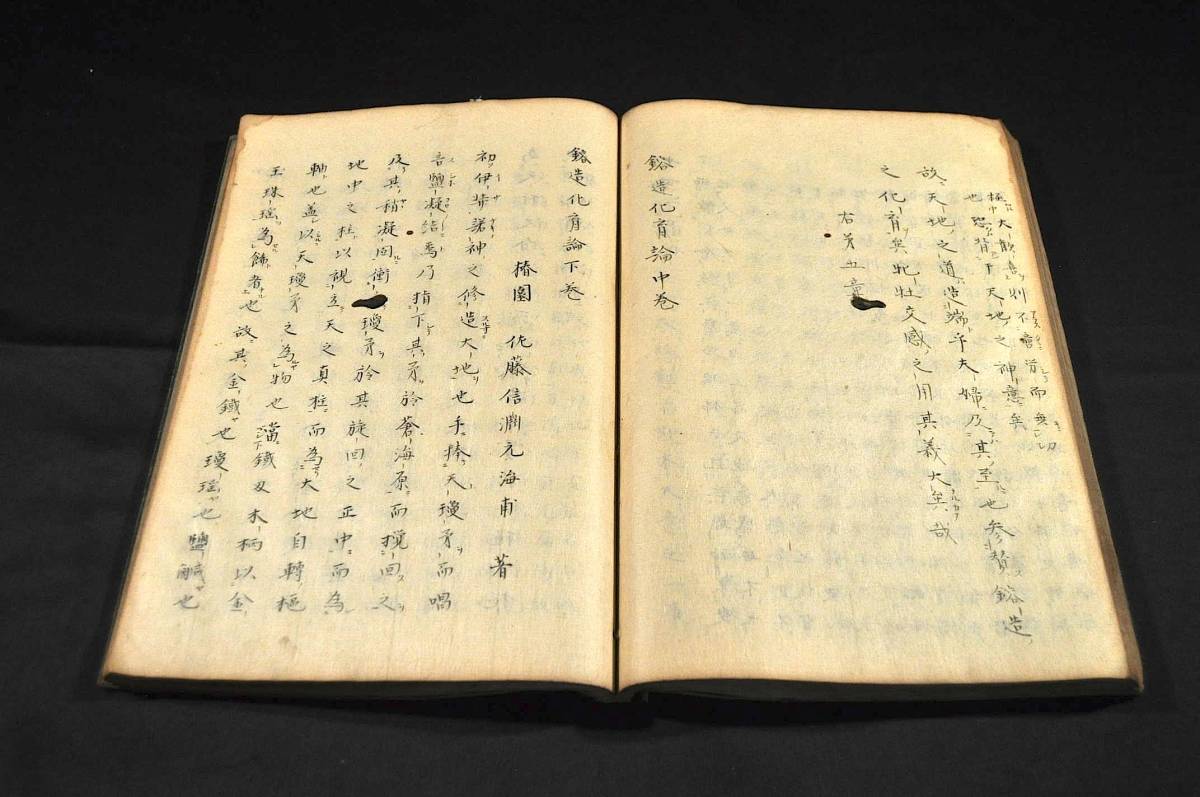 極大歡意則不啻於而無切
也恐背于天地之神意矣
故天地之道造端乎夫婦及其至也參贊鎔造
之化育矣牝牡交感之用其義大矣哉
右第五章
鎔造化育論中巻
鎔造化育論下巻
椿園 佐藤信淵元海甫 著
初伊弉諾神之修造大地也手捧天瓊矛而唱
言鹽凝結焉乃指下其矛於蒼海原而攪回之
及其稍凝固衝瓊矛於其旋回之正中而為
地中之柱以観立天之真柱而為大地自轉樞
軸也蓋以天瓊矛之為物也當下鐵刃木柄以金
玉珠瑶為飾者也故其金鐵也瓊瑶也鹽鹹也